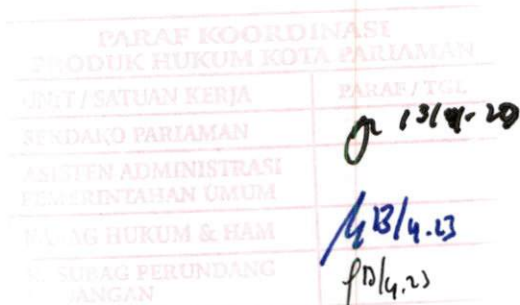 PARAF KOORDINASI
PRODUK HUKUM KOTA PARIAMAN
UNIT / SATUAN KERJA PARAF / TGL
SEKDAKO PARIAMAN
ASISTEN ADMINISTRASI
PEMERINTAHAN UMUM
KABAG HUKUM & HAM 13/4.23
SUBAG PERUNDANG 13/4.23
UNDANGAN